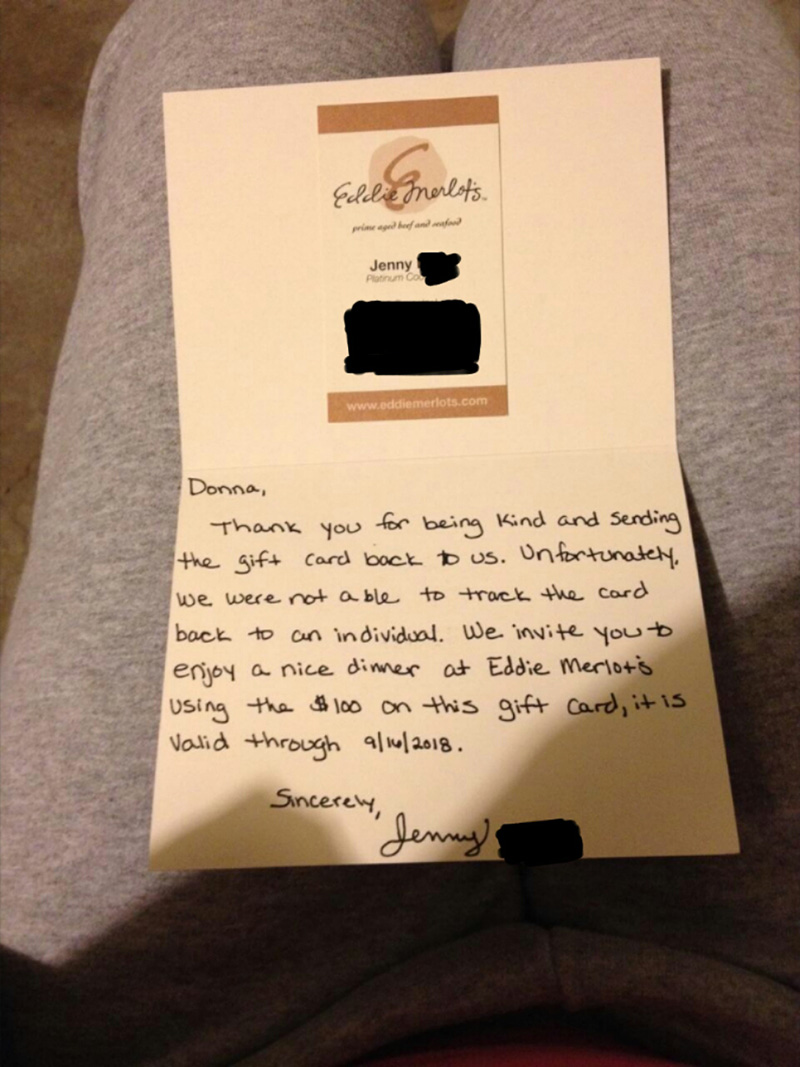 Eddie Merlot's
prime aged beef and seafood
Jenny
Platinum
www.eddiemerlots.com
Donna,
Thank you for being kind and sending
the gift card back to us. Unfortunately,
we were not able to track the card
back to an individual. We invite you to
enjoy a nice dinner at Eddie Merlot's
using the $100 on this gift card, it is
valid through 9/16/2018.
Sincerely,
Jenny